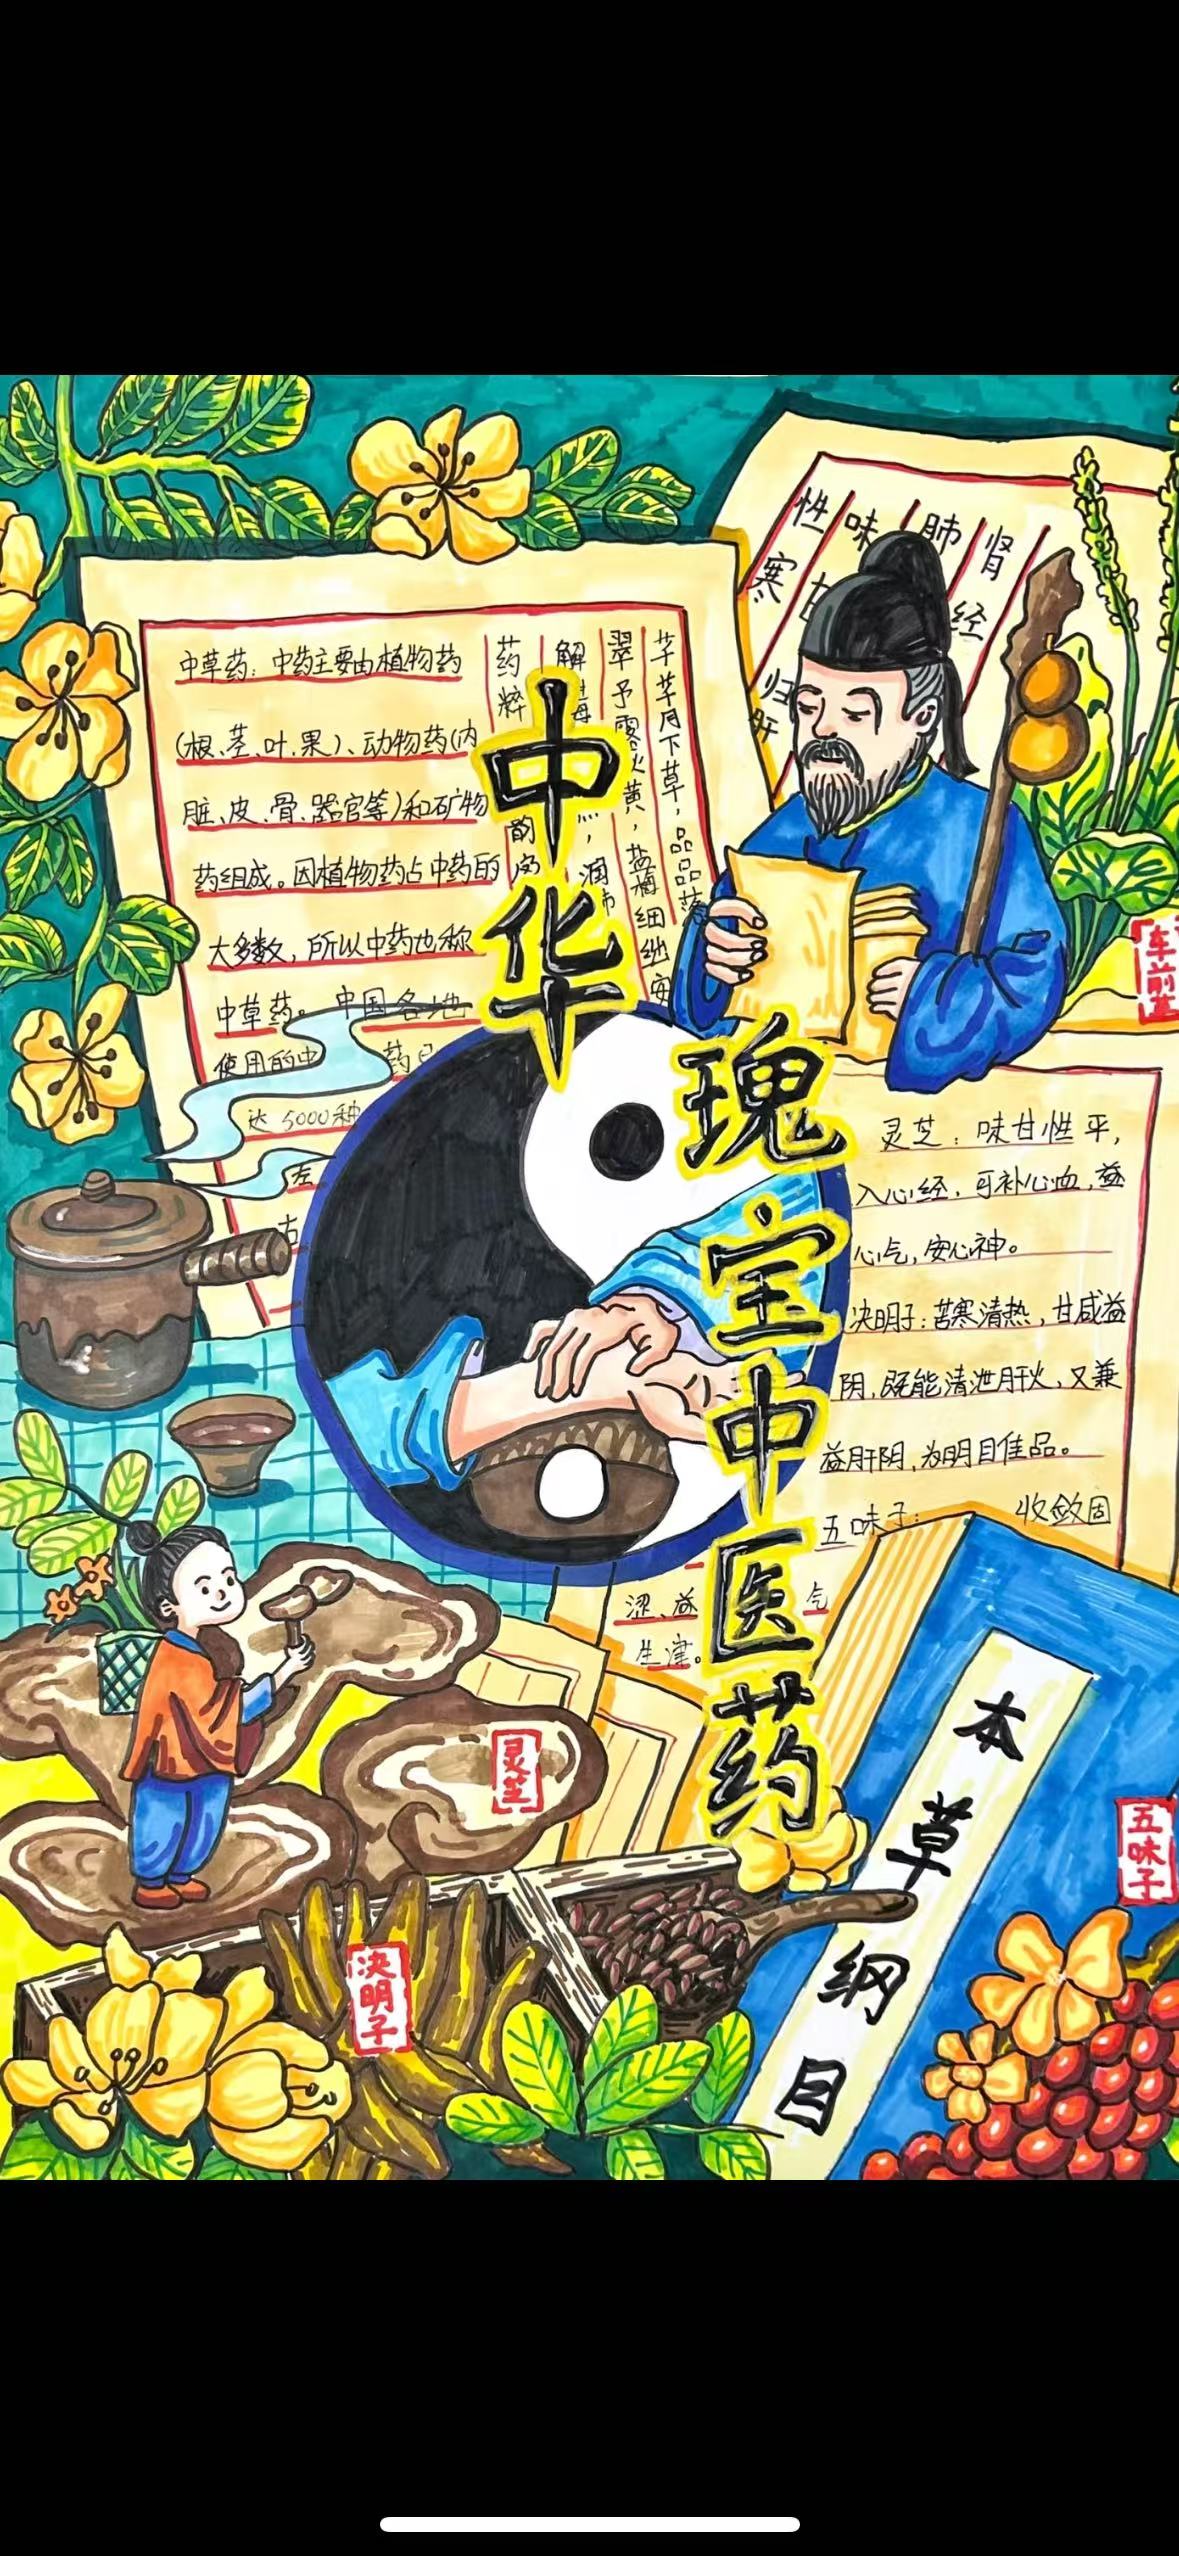 中华
瑰宝中医药
中草药：中药主要由植物药
（根、茎、叶、果）、动物药（内
脏、皮、骨、器官等）和矿物
药组成。因植物药占中药的
大多数，所以中药也称
中草药。中国各地
使用的中 药已
达5000种
左
右
芊芊月下草，品品落
翠予零火黄，
细细安
解
润
药
粹
韵
性
味
肺
肾
寒
甘
经
归
肝
车前草
灵芝：味甘性平，
入心经，可补心血，益
心气，安心神。
决明子：苦寒清热，甘咸益
阴，既能清泄肝火，又兼
益肝阴，为明目佳品。
五味子： 收敛固
涩、益 气
生津。
灵芝
决明子
五味子
本草纲目